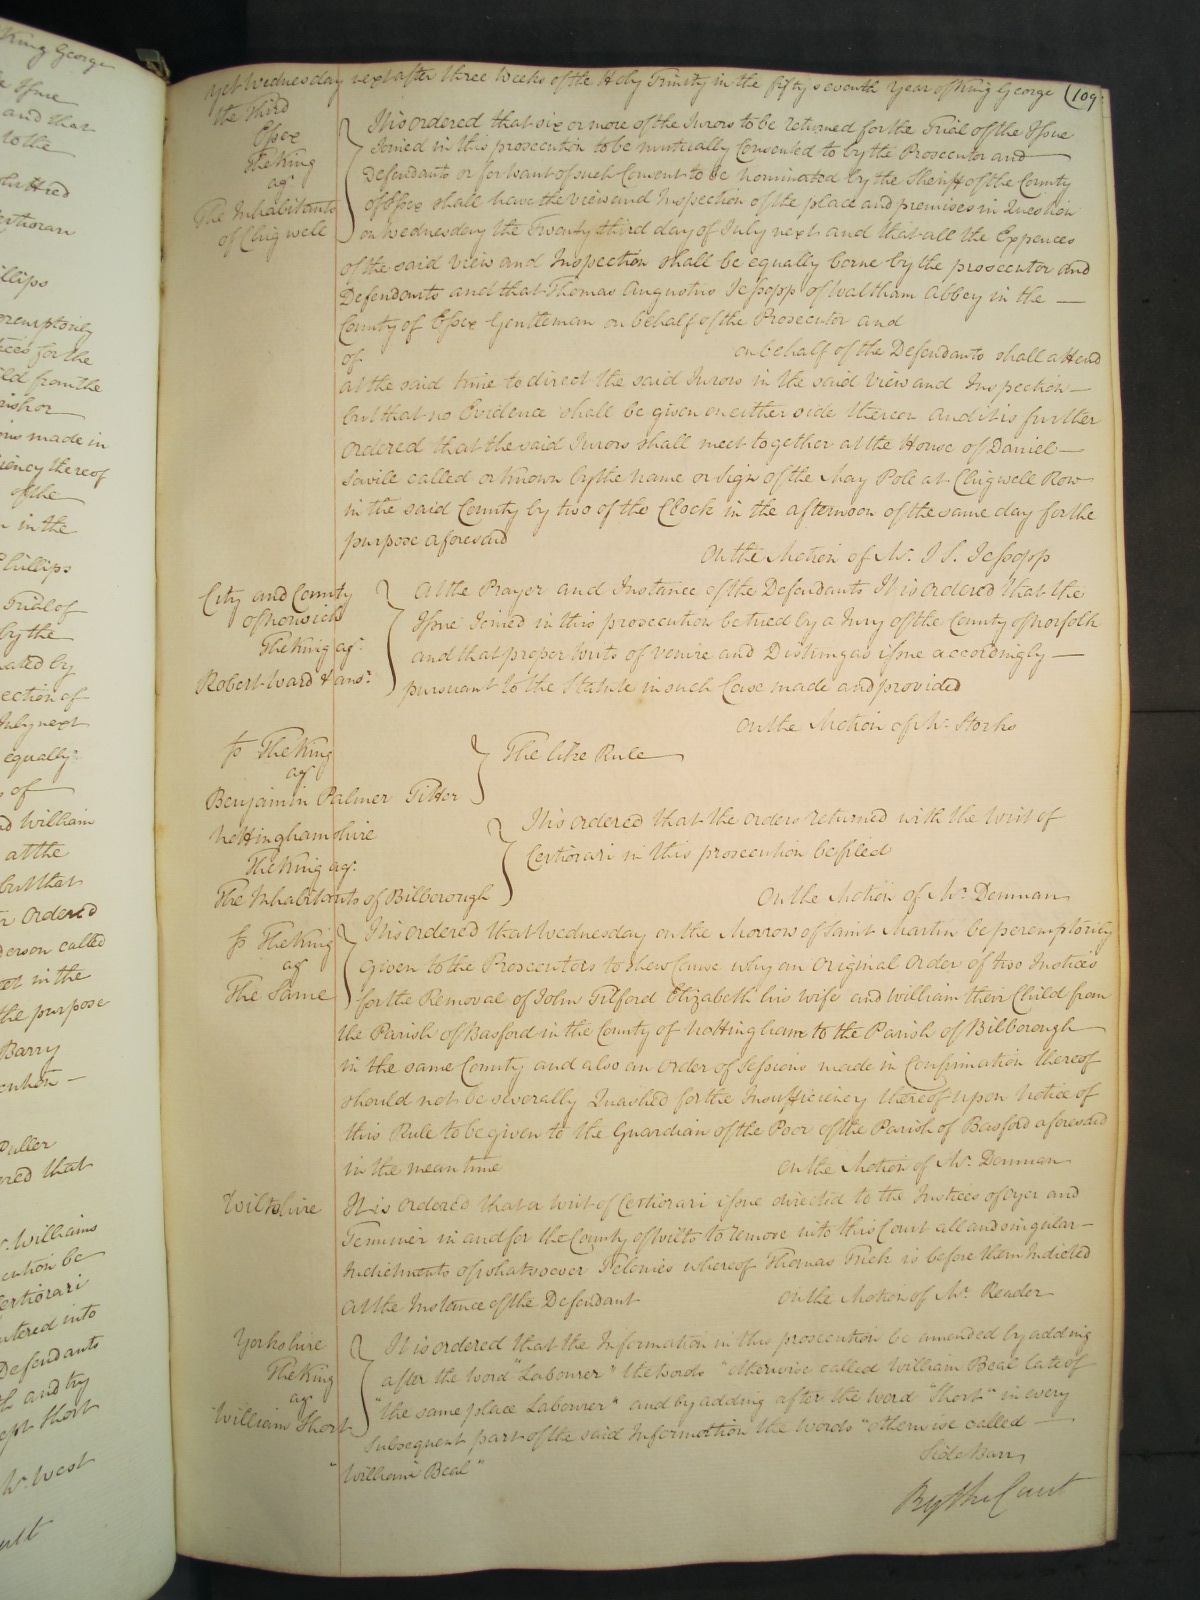 King George
Issue
and that
to the
Certiorari
Phillips
peremptorily
for the
from the
made in
thereof
of the
in the
Phillips
Trial of
by the
by
of
July next
equally
of
William
at the
but that
Ordered
called
in the
the purpose
Barry
Puller
that
Mr. Williams
be
Certiorari
entered into
Defendants
and try
Short
Mr. West
Yet Wednesday next after three Weeks of the Holy Trinity in the fifty seventh Year of King George 109
the Third
Essex
The King
agt
The Inhabitants
of Chigwell
It is ordered that six or more of the Jurors to be returned for the Trial of the Issue
Joined in this prosecution to be mutually Consented to by the Prosecutor and
Defendants or for want of such Consent to be nominated by the Sheriff of the County
of Essex shall have the view and Inspection of the place and premises in Question
on Wednesday the Twenty third day of July next and that all the Expences
of the said View and Inspection shall be equally borne by the prosecutor and
Defendants and that Thomas Augustus Jessopp of Waltham Abbey in the
County of Essex Gentleman on behalf of the Prosecutor and
of on behalf of the Defendants shall attend
at the said time to direct the said Jurors in the said View and Inspection
but that no Evidence shall be given on either side thereon and it is further
ordered that the said Jurors shall meet together at the House of Daniel
Savile called or known by the name or Sign of the May Pole at Chigwell Row
in the said County by two of the Clock in the afternoon of the same day for the
purpose aforesaid
On the Motion of Mr. J S. Jessopp
City and County
of Norwich
The King agt.
Robert Ward & anor.
At the Prayer and Instance of the Defendants It is ordered that the
Issue Joined in this prosecution be tried by a Jury of the County of Norfolk
and that proper Writs of Venire and Distringas issue accordingly
pursuant to the Statute in such Case made and provided
On the Motion of Mr. Storks
So The King
agt
Benjamin Palmer Titter
The like Rule
Nottinghamshire
The King agt.
The Inhabitants of Bilborough
It is ordered that the orders returned with the Writ of
Certiorari in this prosecution be filed
On the Motion of Mr. Denman
So The King
agt
The Same
It is ordered that Wednesday on the Morrow of Saint Martin be peremptorily
given to the Prosecutors to shew Cause why an Original Order of two Justices
for the Removal of John Tilford Elizabeth his wife and William their Child from
the Parish of Basford in the County of Nottingham to the Parish of Bilborough
in the same County and also an Order of Sessions made in Confirmation thereof
should not be severally Quashed for the Insufficiency thereof upon Notice of
this Rule to be given to the Guardian of the Poor of the Parish of Basford aforesaid
in the mean time
On the Motion of Mr. Denman
Wiltshire
It is Ordered that a Writ of Certiorari issue directed to the Justices of Oyer and
Terminer in and for the County of Wilts to remove into this Court all and singular
Indictments of whatsoever Felonies whereof Thomas Frick is before them Indicted
At the Instance of the Defendant
On the Motion of Mr. Reader
Yorkshire
The King
agt
William Short
It is ordered that the Information in this prosecution be amended by adding
after the word "Labourer" the words "otherwise called William Beal late of
"the same place Labourer" and by adding after the word "Short" in every
subsequent part of the said Information the words "otherwise called
"William Beal"
Side Barr
By the Court